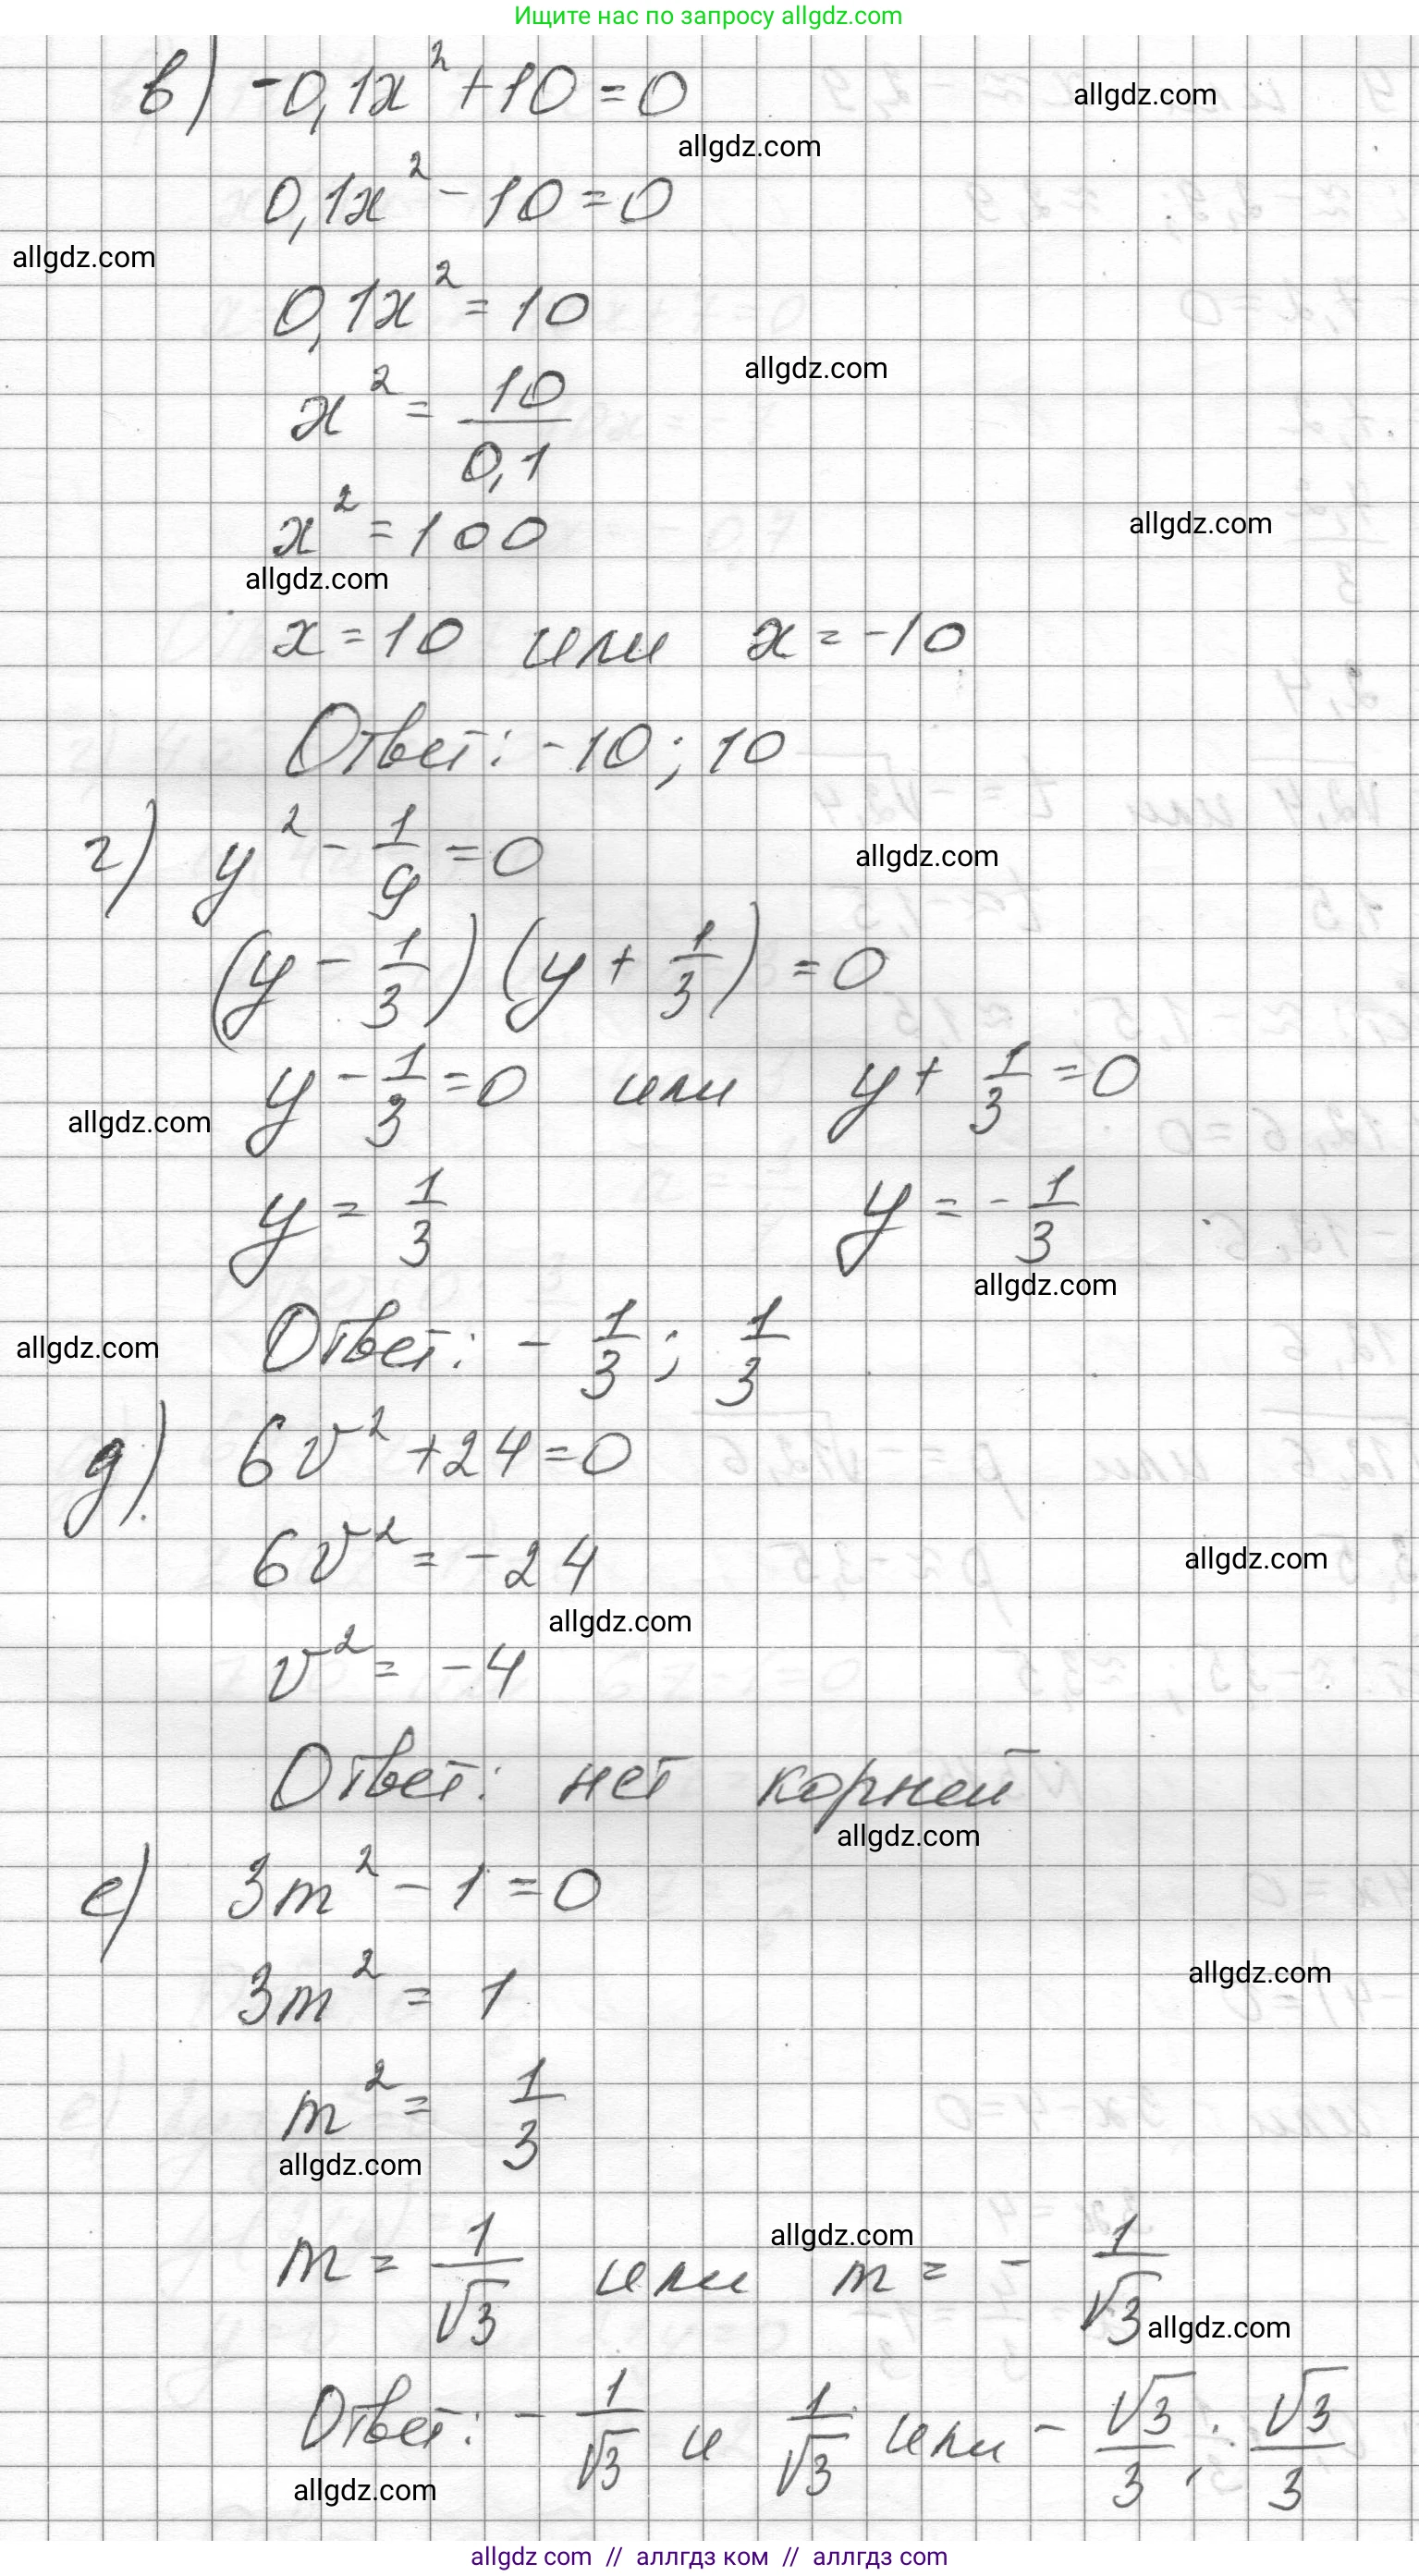 Ищите нас по запросу allgdz.com
в) -0,1x² + 10 = 0
allgdz.com
allgdz.com
0,1x² - 10 = 0
allgdz.com
0,1x² = 10
allgdz.com
x² = 10/0,1
x² = 100
allgdz.com
allgdz.com
x = 10 или x = -10
Ответ: -10; 10
г) y² - 1/9 = 0
allgdz.com
(y - 1/3)(y + 1/3) = 0
y - 1/3 = 0 или y + 1/3 = 0
allgdz.com
y = 1/3 y = -1/3
allgdz.com
Ответ: -1/3; 1/3
allgdz.com
д) 6v² + 24 = 0
6v² = -24
allgdz.com
allgdz.com
v² = -4
Ответ: нет корней
allgdz.com
е) 3m² - 1 = 0
allgdz.com
3m² = 1
m² = 1/3
allgdz.com
allgdz.com
m = 1/√3 или m = -1/√3
allgdz.com
Ответ: -1/√3 и 1/√3 или -√3/3; √3/3
allgdz.com
allgdz com // аллгдз ком // аллгдз com